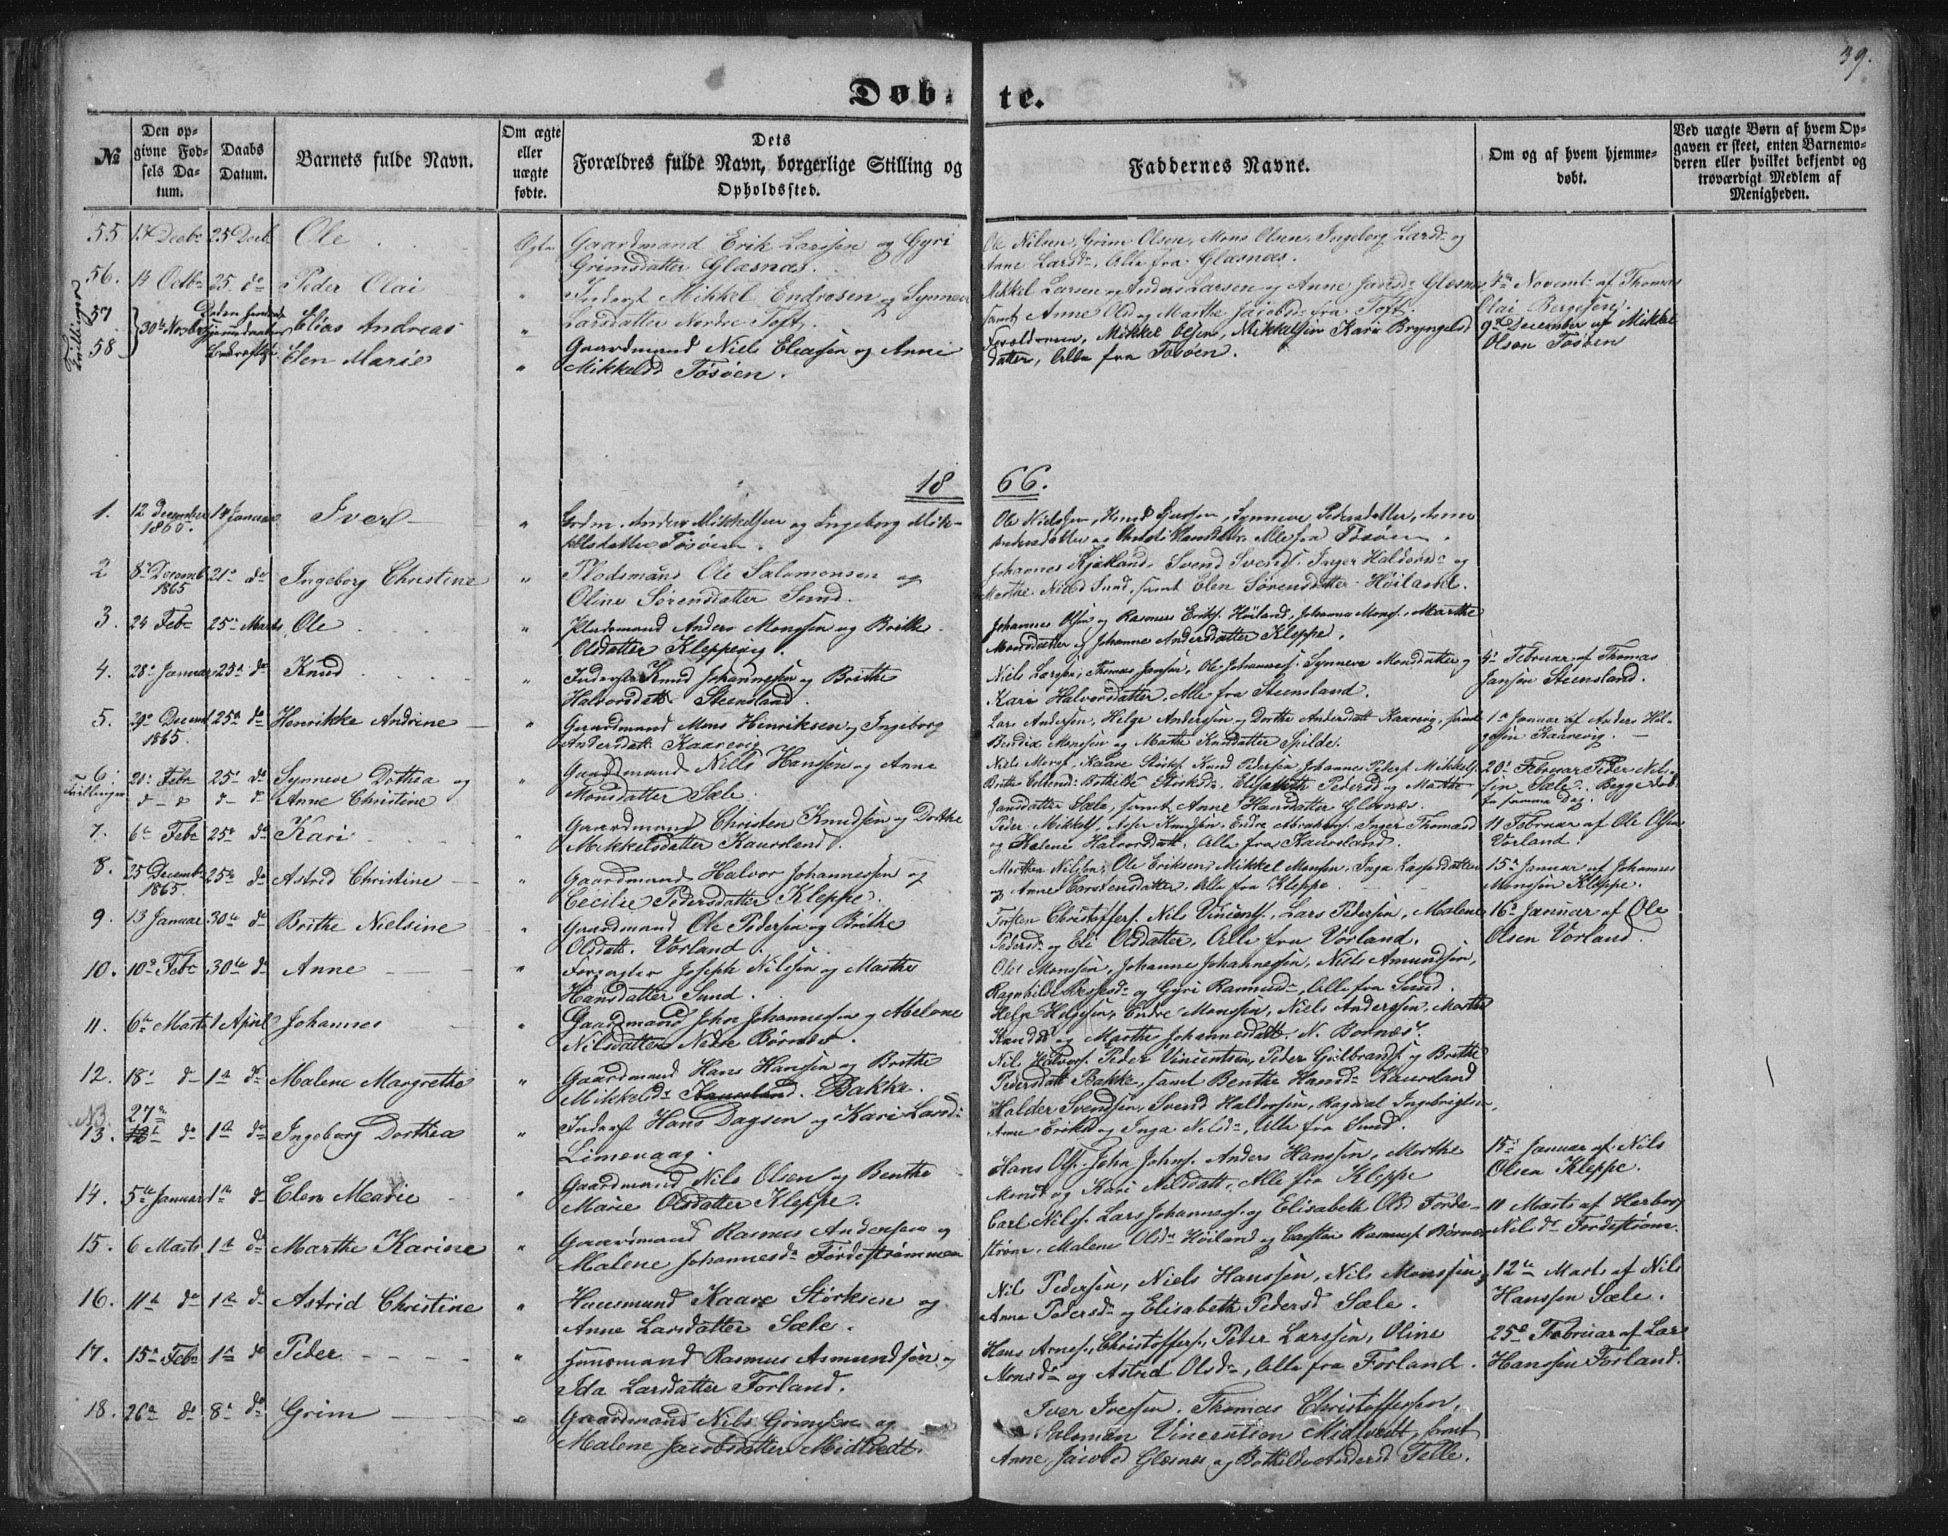 39.
Døb-te.
№
Den op-
givne Fød-
sels Da-
tum.
Daabs
Datum.
Barnets fulde Navn.
Om ægte
eller
uægte
fødte.
Dets
Forældres fulde Navn, borgerlige Stilling og
Opholdssted.
Faddernes Navne.
Om og af hvem hjemme-
døbt.
Ved uægte Børn af hvem Op-
gaven er skeet, enten Barnemo-
deren eller hvilket bekjendt og
troværdigt Medlem af
Menigheden.
55 25 Decb Ole Ægte Gaardmand Erik Larssen og Gyri
Grimsdatter Glæsnæs.
Ole Nilsen, Grim Olsen, Mons Olsen, Ingeborg Larsd og
Anne Larsd, Alle fra Glæsnæs.
56. 14 Octb 25 do Peder Olai Inderst Mikkel Endresen og Synneve
Larsdatter Nordre Toft.
Mikkel Larsen og Anders Larsen og Anne Glæsnæs
samt Anne Olsd og Marthe Jacobsd fra Toft.
4de Novemb af Thomas
Olai Bergesen
Tvillinger
57 30te Novbr Elias Andreas
58 Elen Marie
Gaardmand Niels Eliassen og Anne
Mikkelsd Tøsøen.
Forældrene, Mikkel Olsen, Mikkelsen Kari Bryngels
datter, Alle fra Tøsøen.
9de December af Mikkel
Olsen Tøsøen
1866.
1. 12 December
1865. 14 Januar Iver Grdm. Anders Mikkelsen og Ingeborg Mik-
kelsdatter Tøsøen.
Ole Nielssen, Synneve Pedersdatter, Anne
Andersdatter og Alle fra Tøsøen.
2 8de Decemb
1865 21de do Ingeborg Christine Pladsmand Ole Salomonsen og
Oline Sørensdatter Sund.
Johannes Kjøkland, Svend Svends. Inger Haldorsd og
Marthe Nilsd Sund, samt Elen Sørensdatter Høiland.
3. 24 Feb 25de Marts Ole Pladsmand Anders Monssen og Brithe
Olsdatter Kleppevig.
Johannes Olsen og Rasmus Eriks. Høiland, Johannes Mons. Marthe
Monsdatter og Johanne Andersdatter Kleppe.
4. 28de Januar 25de do Knud Inderst Knud Johannessen og Brithe
Halvorsdatt Steensland.
Niels Larssen, Thomas Jansen, Ole Johanness. Synneve Monsdatter og
Kari Halvorsdatter, Alle fra Steensland.
4de Februar af Thomas
Jansen Steensland.
5. 29de Decemb
1865. 25de do Henrikke Andrine Gaardmand Mons Henriksen og Ingeborg
Andersdatt Kaarevig
Lars Andersen, Helge Anderssen og Dorthe Andersdatt Kaarevig, samt
Bendix Monssen og Marthe Knudsdatter Spilde.
1de Januar af Anders Hel-
gesen Kaarevig.
6. Tvillinger 21de Feb 25de do Synneve Dothea og
Anne Christine
Gaardmand Niels Hanssen og Anne
Monsdatter Sæle.
Niels Mons. Kaare Størks. Knud Pedersen, Johannes Peders. Mikkels
Brithe Bothilde Størksd. Elisabeth Pedersd og Marthe
Jansdatter Sæle, samt Anne Hansdatter Glæsnæs.
20de Februar Peder Niel-
sen Sæle. Begge døbt
fra samme Dag.
7. 6te Feb 25de do Kari Gaardmand Christen Knudssen og Dorthe
Mikkelsdatter Kausland.
Peder Mikkels. Knudssen, Endre Abrahams. Inger Thomasd
og Halvorsdatt. Alle fra Kausland.
11 Februar af Ole Olsen
Vorland.
8. 25 Decemb
1865 25de do Astrid Christine Gaardmand Halvor Johannessen og
Cecilie Pedersdatter Kleppe.
Morthen Nilsen, Ole Eriksen, Mikkel Monsen, Inga Caspersdatter
og Anne Carstensdatter, Alle fra Kleppe.
15de Januar af Johannes
Monssen Kleppe.
9. 13 Januar 30te do Brithe Nielsine Gaardmand Ole Pedersen og Brithe
Olsdatt. Vorland.
Torsten Christoffers. Nils Vincents, Lars Pedersen, Malene
Pedersd og Eli Olsdatter, Alle fra Vorland.
16de Januar af Ole
Olsen Vorland.
10. 10de Feb 30te do Anne Forpagter Joseph Nilssen og Marthe
Hansdatter Sund.
Ole Monssen, Johanne Johannessen, Niels Amundsen,
Ragnhilde og Gyri Rasmusd, Alle fra Sund.
11. 6te Marts 1 April Johannes Gaardmand John Johannessen og Malene
Nilsdatter Nedre Børnæs.
Helje Helgesen, Endre Monssen, Niels Anderssen, Marthe
Knudsd og Marthe Johannesdatt. N. Bornæs.
12. 18de do 1ste do Malene Margrethe Gaardmand Hans Hanssen og Brithe
Mikkelsd Kausland. Bakke.
Nils Halvors. Peder Vincentsen, Peder Gulbrands og Brithe
Pedersdatt Bakke, samt Benthe Hansd Kausland
13. 27de do 1ste do Ingeborg Dorthea Inderst Hans Dagsen og Kari Larsd
Limevaag.
Halder Svendsen, Svend Haldorsen, Ragnal Ingebrigtsen,
Anne Eriksd og Inga Nilsd, Alle fra Sund.
14. 5te Januar 1ste do Elen Marie Gaardmand Nils Olsen og Benthe
Marie Olsdatter Kleppe.
Hans Ols. John Johns. Anders Hanssen, Marthe
Monsd og Kari Nilsdatt, Alle fra Kleppe
15de Januar af Nils
Olsen Kleppe.
15. 6 Marts 1ste do Marthe Karine Gaardmand Rasmus Andersen og
Malene Johannesd Førdestrømmen
Carl Nils. Lars Johanness. og Elisabeth Olsd Førde-
strøm. Malene Olsd Høiland og Carsten Rasmuss. Børnæs
11 Marts af Herborg
Nilsd Fordestrøm.
16. 11te do 1ste do Astrid Christine Huusmand Kaare Størksen og
Anne Larsdatter Sæle.
Nil Pedersen, Niels Hanssen, Nils Monssen,
Anne Pedersd og Elisabeth Pedersd Sæle.
12te Marts af Nils
Hanssen Sæle.
17. 15de Feb 1ste do Peder Huusmand Rasmus Asmundsen og
Ida Larsdatter Forland.
Hans Arnes. Christoffers. Peder Larssen, Oline
Monsd og Astrid Olsd, Alle fra Forland.
25de Februar af Lars
Hanssen Forland.
18. 26de do 8de do Grim Gaardmand Nils Grimssen og
Malene Jacobsdatter Midtvedt.
Iver Iverssen. Thomas Christoffersen,
Salomon Vincentsen Midtvedt, samt
Anne Jacobsd Glæsnæs og Bothilde Andersd Telle.